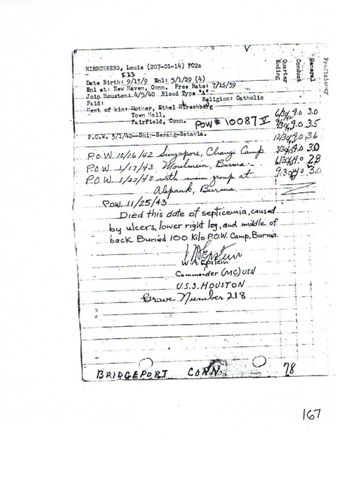 HIRSCHBERG, Louis (207-01-14) PO2c
533
Date Birth: 9/15/9 Enl: 5/1/29 (4)
Enl at: New Haven, Conn. Pres Rate: 7/16/39
Join Houston: 4/5/40 Blood Type "A"
Paid: Religion: Catholic
Next of kin: Mother, Ethel Hirschberg
Town Hall,
Fairfield, Conn. POW # 10087 V
Quarter Ending
Conduct
General
Proficiency
P.O.W. 3/1/42--Ship-Serang-Batavia.
P.O.W. 10/16/42 Singapore, Changi Camp.
P.O.W. 1/17/43 Moulmein, Burma-
P.O.W. 1/22/43 with main group at
Burma
POW 11/25/43
Died this date of septicemia, caused
by ulcers, lower right leg, and middle of
back. Buried 100 Kilo P.O.W. Camp, Burma.
W A Epstein
W. A. Epstein
Commander (MC) USN
U.S.S. HOUSTON
Grave Number 218
BRIDGEPORT CONN 78
167